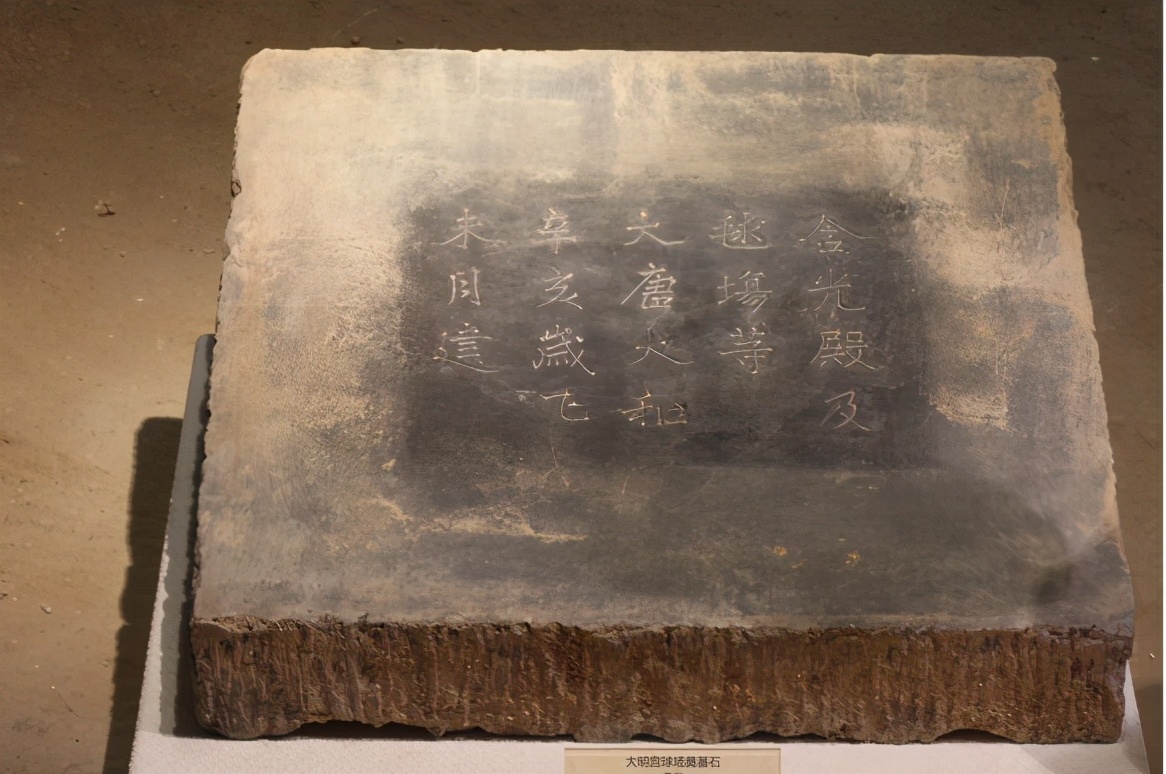 含光殿及
毬塲等
大唐大和
辛亥歲乙
未月建
大明宫球场奠基石